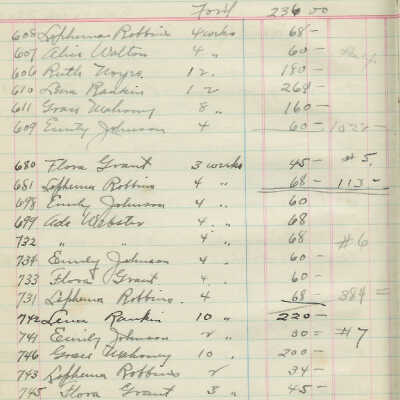 Forw 236 00
608 Lephema Robbins 4 works 68 -
607 Alice Walton 4 " 60 -
606 Ruth Noyes 12 . 180 -
610 Lena Rankin 12 264 -
611 Grace Mahoney 8 " 160 -
609 Emily Johnson 4 60 - 1028 -
680 Flora Grant 3 works 45 - #5.
681 Lephema Robbins 4 " 68 - 113 -
698 Emily Johnson 4 " 60
699 Ada Webster 4 " 68
732 " " 4 " 68 #6
734 Emily Johnson 4 " 60 -
733 Flora Grant 4 . 60 -
731 Lephema Robbins . 4 68 - 384 =
742 Lena Rankin 10 " 220 -
741 Emily Johnson 2 " 30 = #7
746 Grace Mahoney 10 . 200 -
743 Lephema Robbins 2 34 -
745 Flora Grant 3 " 45 -